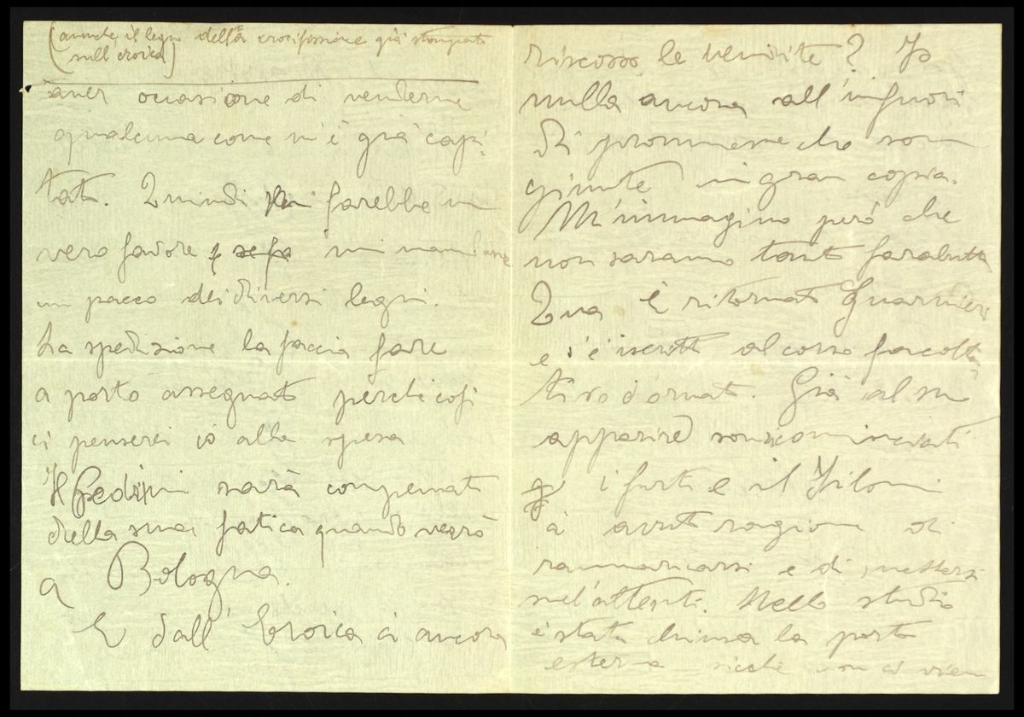 (anche il legno della crocifissione già stampato
sull'eroica)
aver occasione di venderne
qualcuna come m'è già capi-
tato. Quindi mi farebbe un
vero favore se mi mandasse
un pacco dei diversi legni.
La spedizione la faccia fare
a porto assegnato perchè così
ci penserei io alla spesa
Il Pedrini sarà compensato
della sua fatica quando verrò
a Bologna.
E dall'Eroica à ancora
riscosso le vendite? Io
nulla ancora all'infuori
di promesse che sono
giunte in gran copia.
M'immagino però che
non saranno tanto farabutti
Qua è ritornato Guarnieri
e s'è iscritto al corso facolta-
tivo d'ornato. Già al suo
apparire sono cominciati
i furti e il
à avuto ragione di
rammaricarsi e di mettersi
sul'attenti. Nello studio
è stata chiusa la porta
esterna sicchè non ci vien